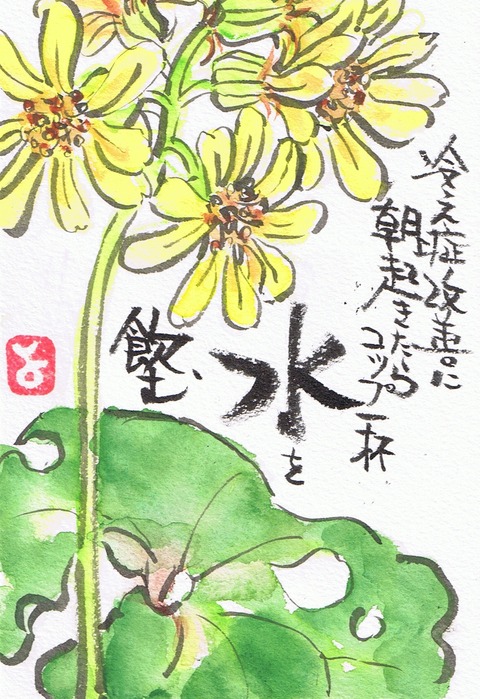 冷え症改善に
朝起きたら
コップ一杯
水を
飲む
と